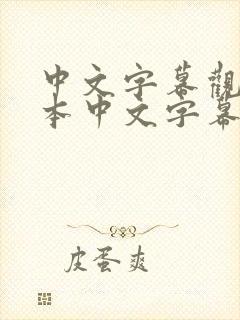 中文字幕觀
本中文字幕
皮蛋爽